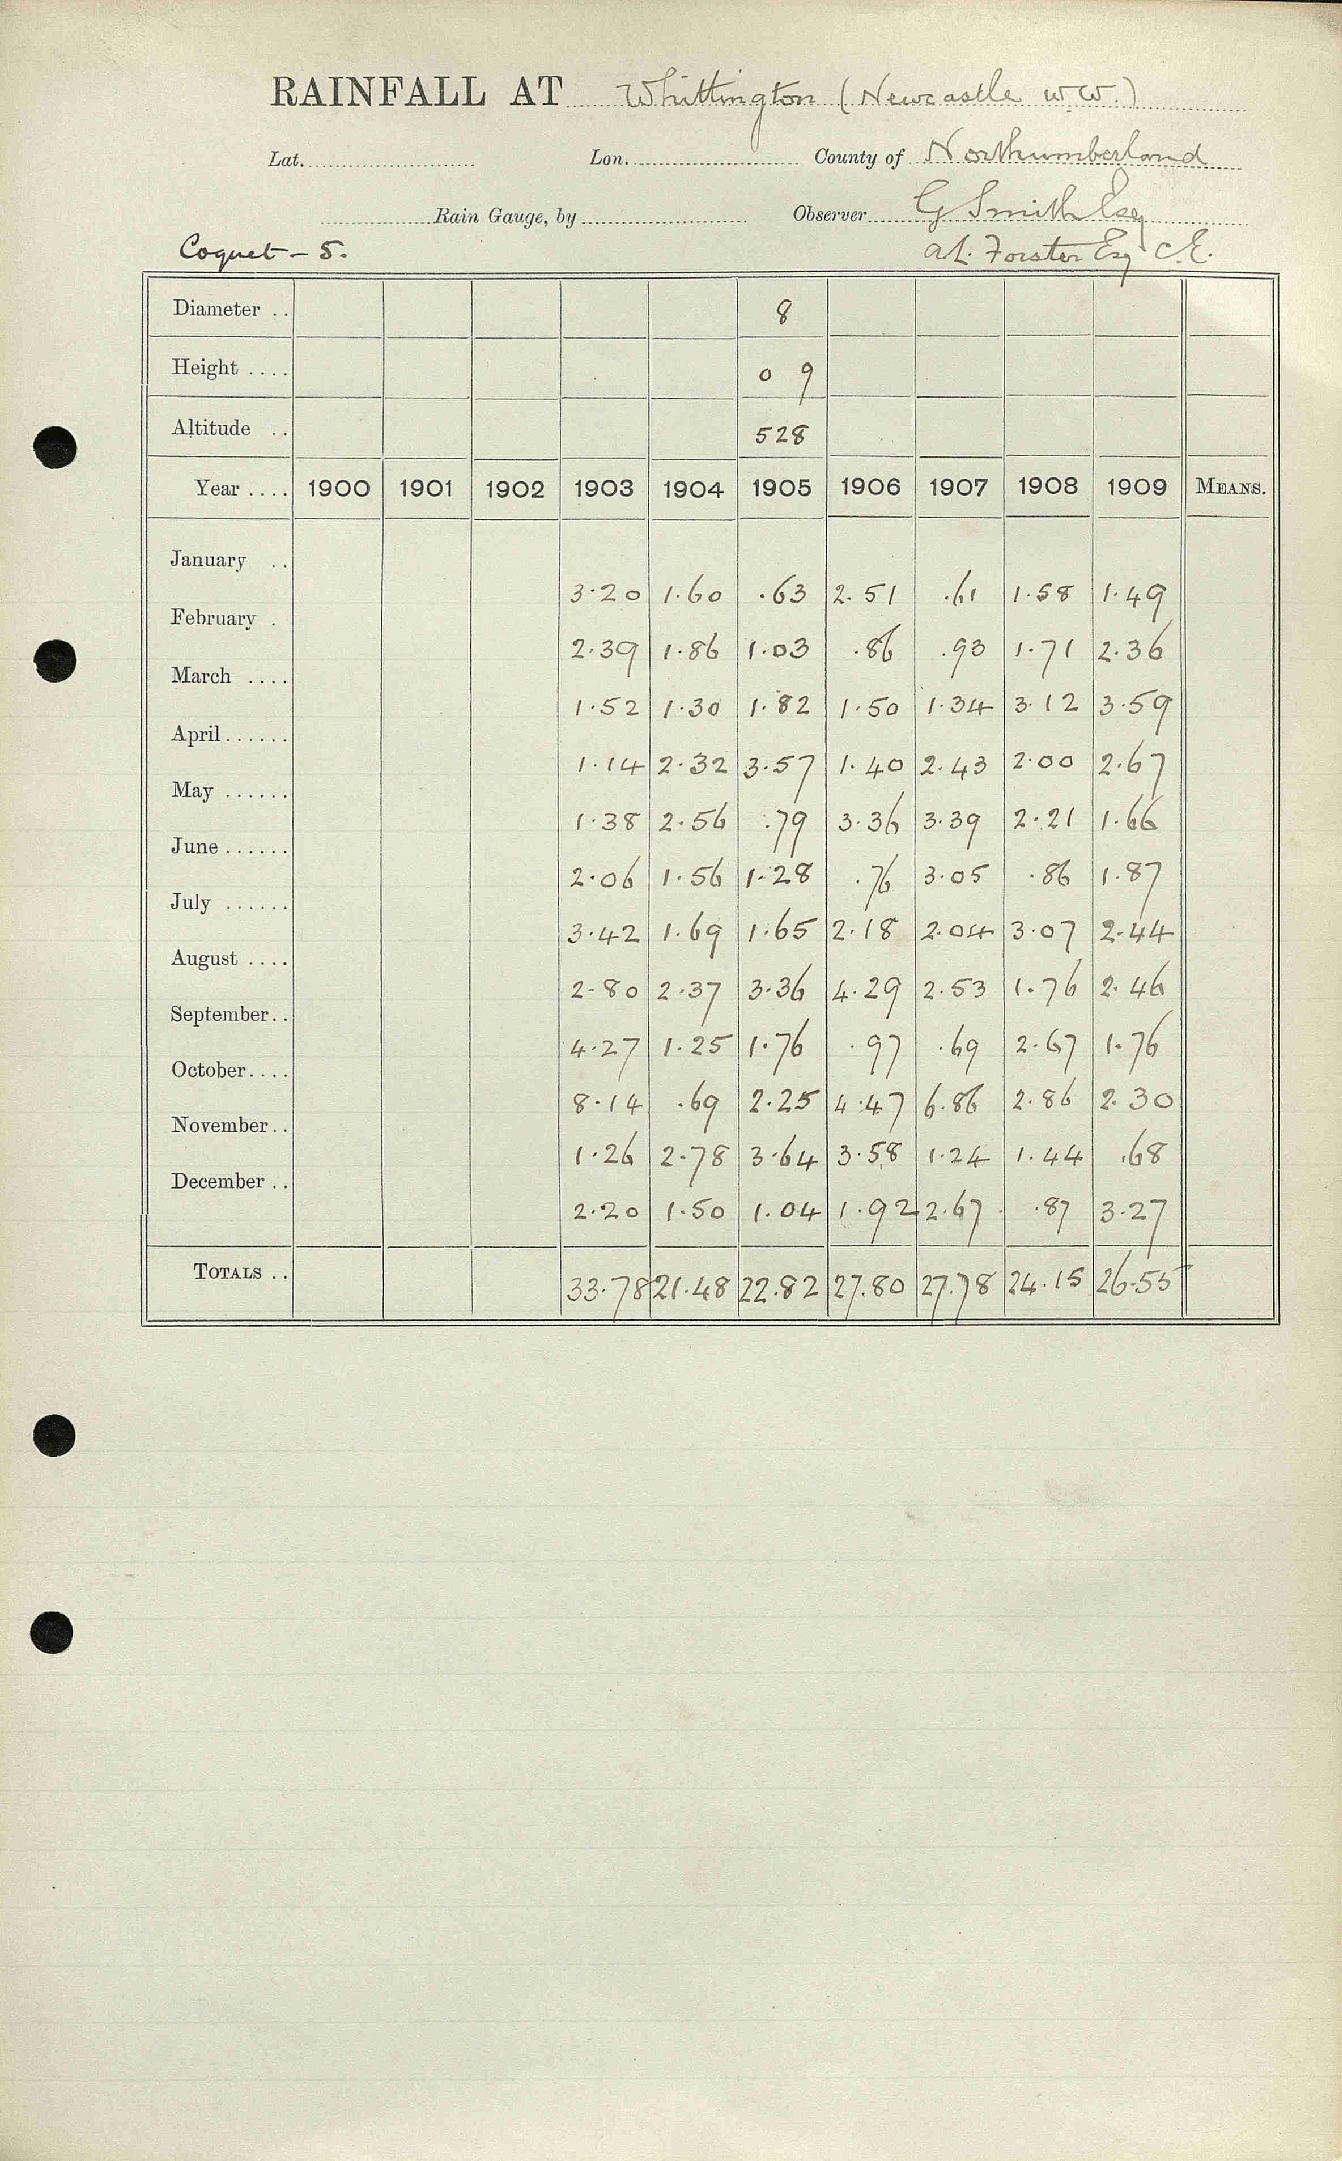 RAINFALL AT Whittington (Newcastle W.W.)
Lat. Lon. County of Northumberland
Rain Gauge, by Observer G Smith Esq
Coquet - 5. A.L. Forster Esq C.E.
Diameter .. 8
Height .... 0 9
Altitude .. 528
Year .... 1900 1901 1902 1903 1904 1905 1906 1907 1908 1909 MEANS.
January ..
3.20 1.60 .63 2.51 .61 1.58 1.49
February .
2.39 1.86 1.03 .86 .93 1.71 2.36
March ....
1.52 1.30 1.82 1.50 1.34 3.12 3.59
April......
1.14 2.32 3.57 1.40 2.43 2.00 2.67
May ......
1.38 2.56 .79 3.36 3.39 2.21 1.66
June......
2.06 1.56 1.28 .76 3.05 .86 1.87
July ......
3.42 1.69 1.65 2.18 2.04 3.07 2.44
August ....
2.80 2.37 3.36 4.29 2.53 1.76 2.46
September..
4.27 1.25 1.76 .97 .69 2.67 1.76
October....
8.14 .69 2.25 4.47 6.86 2.86 2.30
November..
1.26 2.78 3.64 3.58 1.24 1.44 .68
December ..
2.20 1.50 1.04 1.92 2.67 .87 3.27
TOTALS .. 33.78 21.48 22.82 27.80 27.78 24.15 26.55